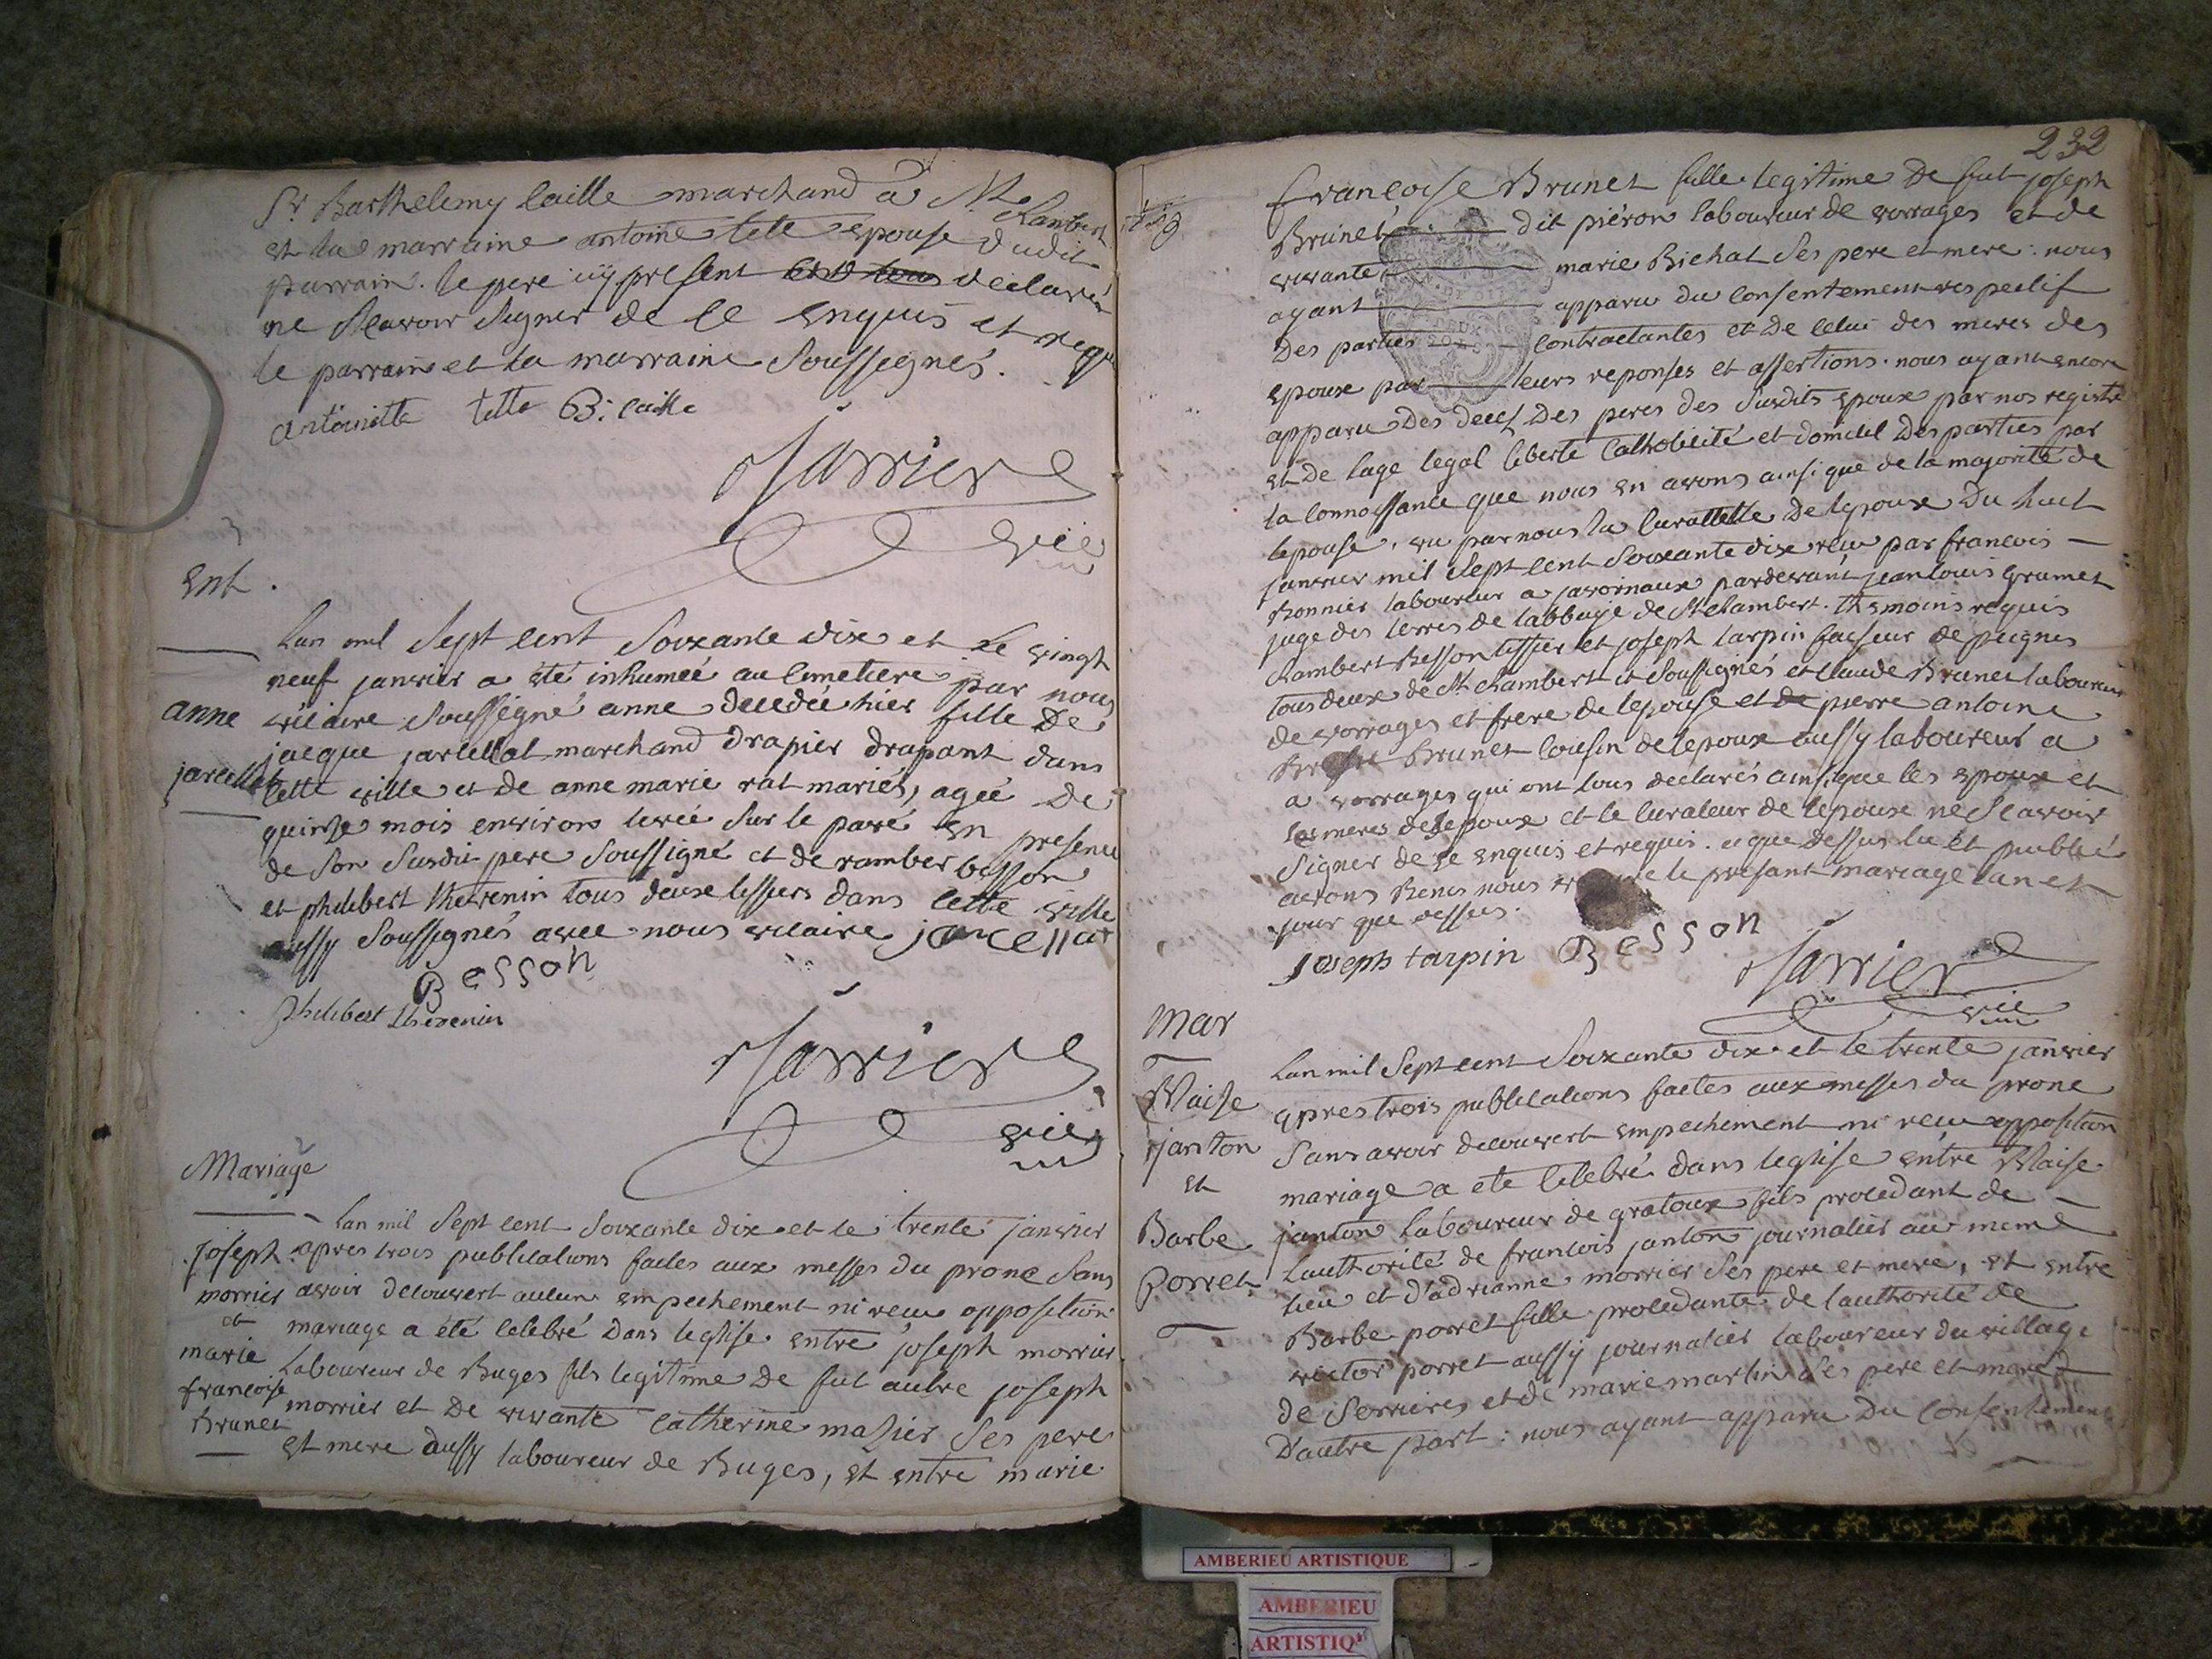 Sr Barthelemy Caille marchand a St Rambert
et la marraine antoine tete epouse dudit
parrain. le pere icy present declaré
ne Scavoir Signer de ce enquis et requis
le parrain et la marraine Soussignés.
antoinette tette B: caille
Marrier
vic
Ent.
Lan mil Sept cent Soixante dix et Le vingt
neuf janvier a été inhumée au Cimetiere par nous
anne
vicaire Soussigné anne decedée hier fille De
jacque jarcellat marchand Drapier drapant dans
jarcellat
cette ville et de anne marie rat mariés, agée De
quinze mois environ levée Sur le pavé en presence
de Son Susdit pere Soussigné et de ramber besson
et philibert thevenin tous deux tissiers dans cette ville
aussy Soussignés avec nous vicaire jarcellat
Besson
Philibert thevenin
Marrier
vic
Mariage
Lan mil Sept cent Soixante dix et le trente janvier
joseph
apres trois publications faites aux messes du prone Sans
morrier
avoir decouvert aucun empechement ni reçu opposition
et
mariage a été celebré Dans leglise entre joseph morrier
marie
Laboureur de Buges fils legitime De fut autre joseph
francoise
morrier et De vivante Catherine mazier Ses pere
Brunet
et mere aussy laboureur de Buges, et entre marie
232
francoise Brunet fille legitime De fut joseph
Brunet dit piéron laboureur de vorrages et de
vivante marie Bichat Ses pere et mere: nous
ayant apparu du Consentement respectif
Des parties Contractantes et De celui des meres des
epoux par leurs reponses et assertions. nous ayant encore
apparu Des deces Des peres des Susdits epoux par nos registre
et De lage legal liberté Catholicité et domicil Des parties par
la Connoissance que nous en avons ainsi que de la majorité de
lepouse. vu par nous la Curattelle De lepoux Du huit
janvier mil Sept cent Soixante dix reçue par francois
Bonnier laboureur a javornaux pardevant jean louis Grumet
juge des terres de labbaye de St Rambert. Thémoins requis
Rambert Besson tissier et joseph tarpin faiseur de peignes
tous deux de St Rambert et Soussignés et Claude Brunet laboureur
de vorrages et frere de lepouse et de pierre antoine
Brunet Cousin de lepoux aussy laboureur a
a vorrages qui ont tous declarés ainsi que les epoux et
les meres de lepoux et le Curateur de lepoux ne Scavoir
Signer de ce enquis et requis. ce que Dessus lu et publié
avons Benis nous le presant mariage lan et
jour que dessus.
joseph tarpin Besson
Marrier
vic
Mar
Lan mil Sept cent Soixante dix et le trente janvier
Blaise
apres trois publications faites aux messes du prone
janton
Sans avoir decouvert empechement ni reçu opposition
et
mariage a ete Celebré dans leglise entre Blaise
Barbe
janton Laboureur de gratoux fils procedant de
Porret
Lauthorité de francois janton journalier au meme
lieu et d'adrianne morrier Ses pere et mere, et entre
Barbe porret fille procedante de lauthorité de
victor porret aussy journalier laboureur du village
de Serrieres et de marie martin Ses pere et mere
D'autre part: nous ayant apparu Du Consentement
AMBERIEU ARTISTIQUE
AMBERIEU
ARTISTIQ